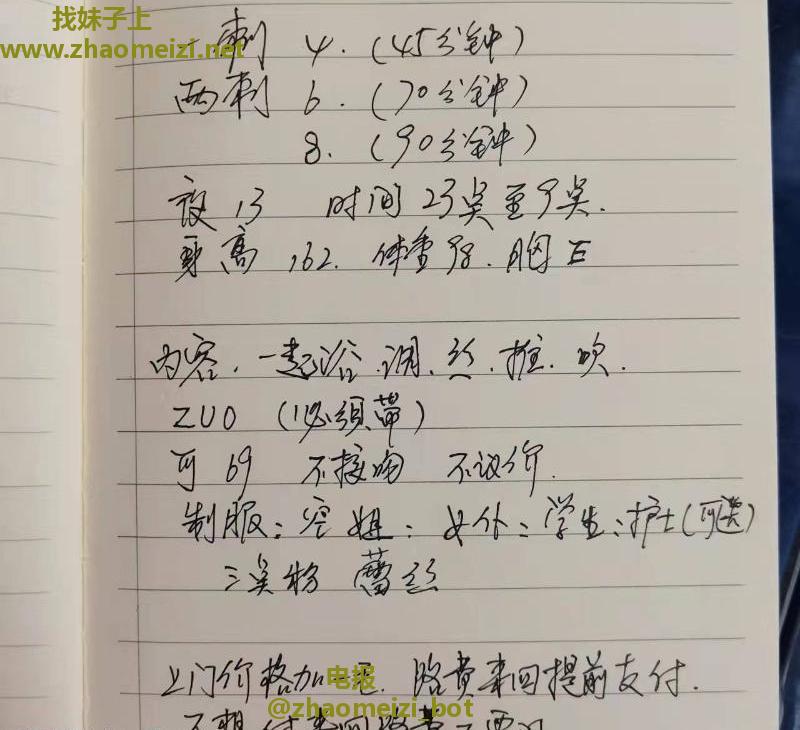 找妹子上
www.zhaomeizi.net
一刺 4. (45分钟)
两刺 6. (70分钟)
8. (90分钟)
夜 13 时间 23点至9点.
身高 162. 体重 98. 胸 E
内容. 一起浴. 调. 丝. 推. 吹.
ZUO (必须带)
可 69 不接吻 不议价.
制服: 空姐: 女仆: 学生: 护士(可选)
三点粉 蕾丝
上门价格加 路费来回提前支付.
电报
@zhaomeizi_bot
不想付来回路费